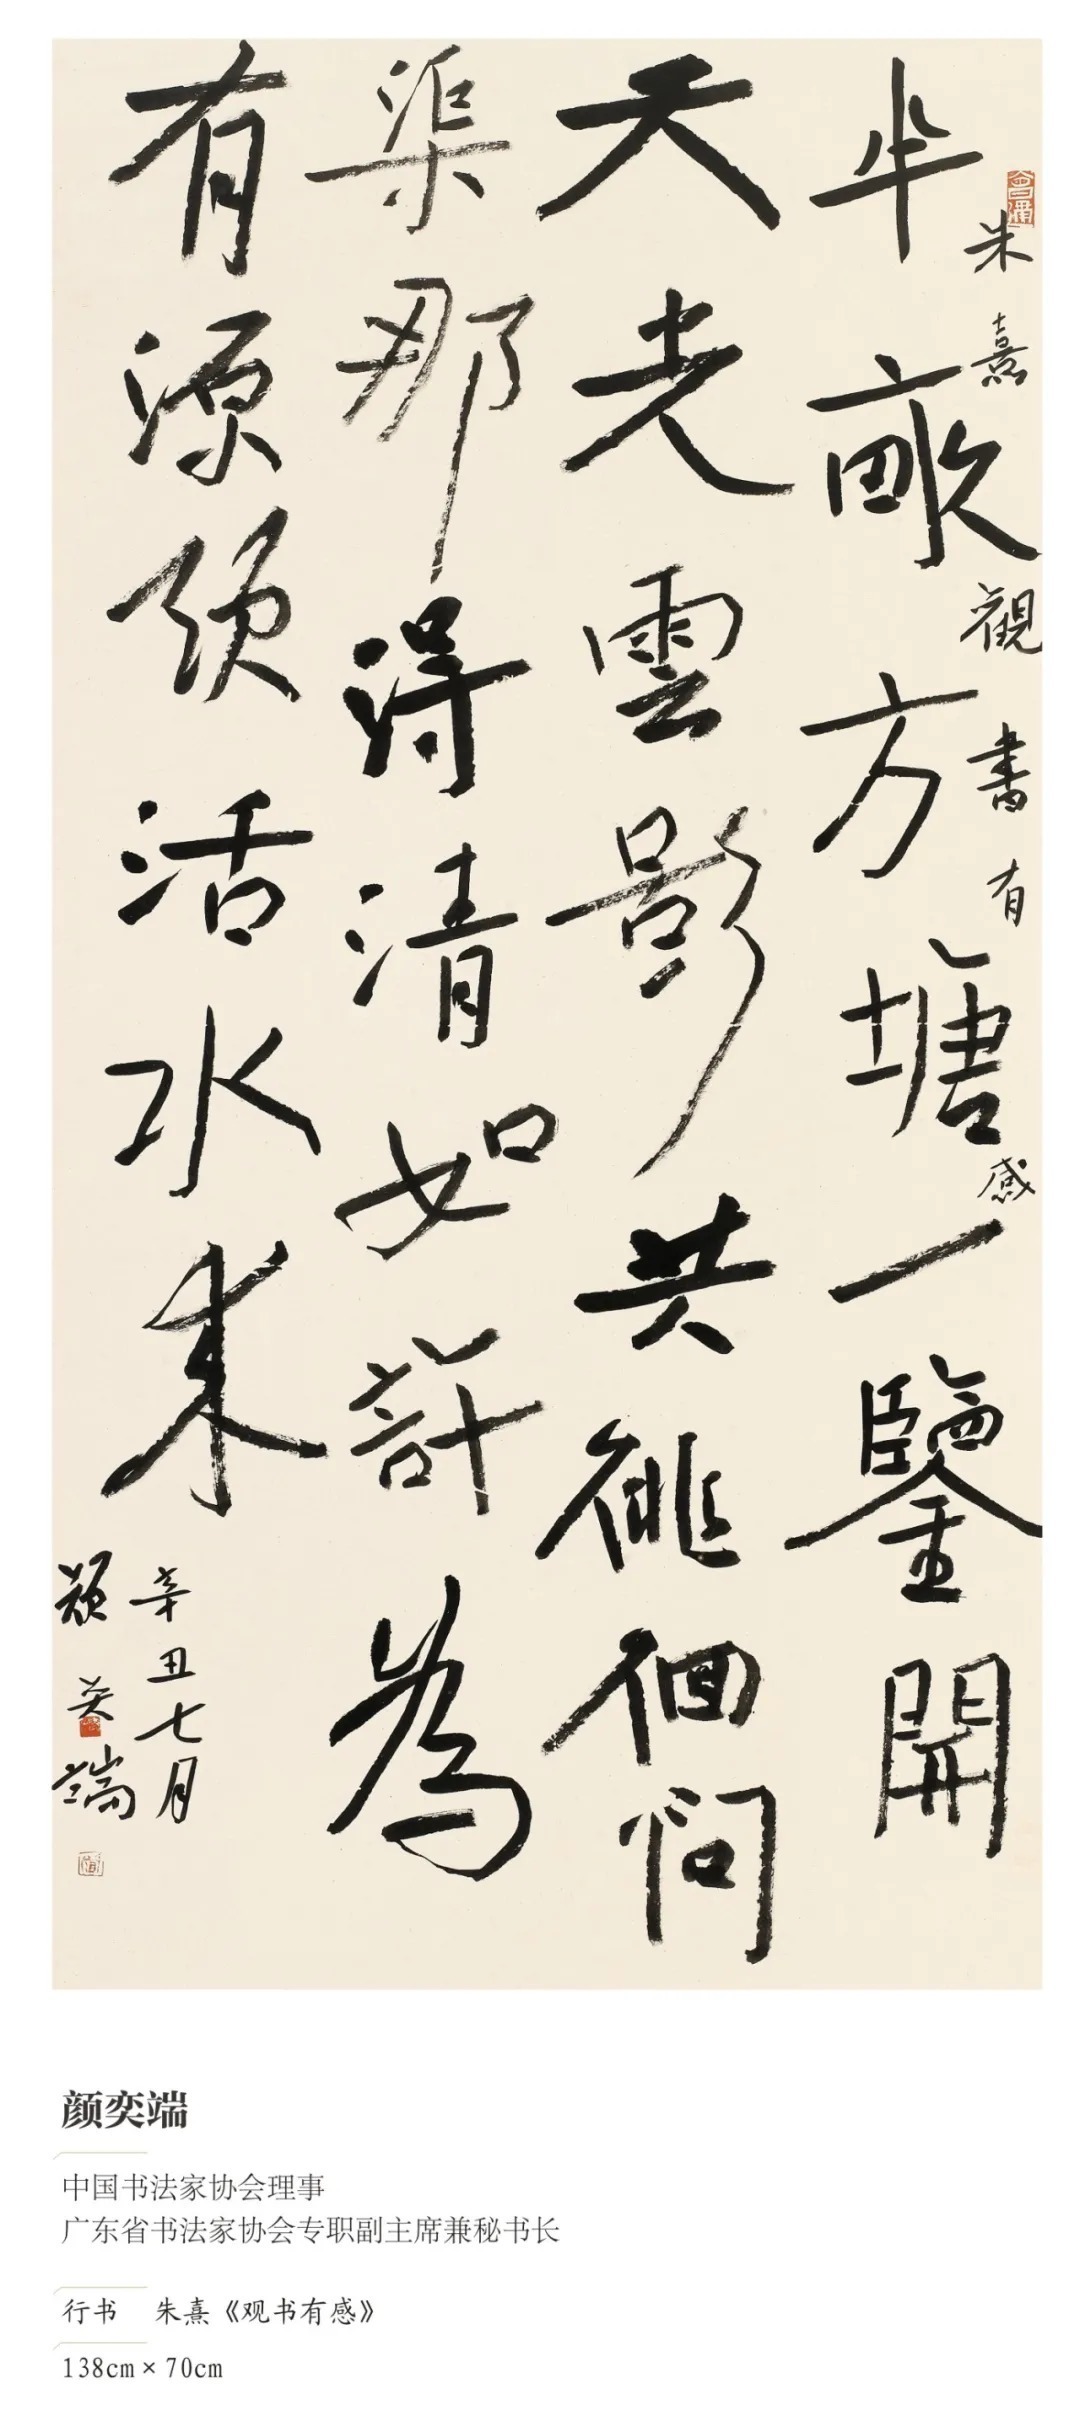 朱熹觀書有感
半畝方塘一鑒開
天光雲影共徘徊問
渠那得清如許為
有源頭活水来
辛丑七月
顏奕端
颜奕端
中国书法家协会理事
广东省书法家协会专职副主席兼秘书长
行书 朱熹《观书有感》
138cm × 70cm